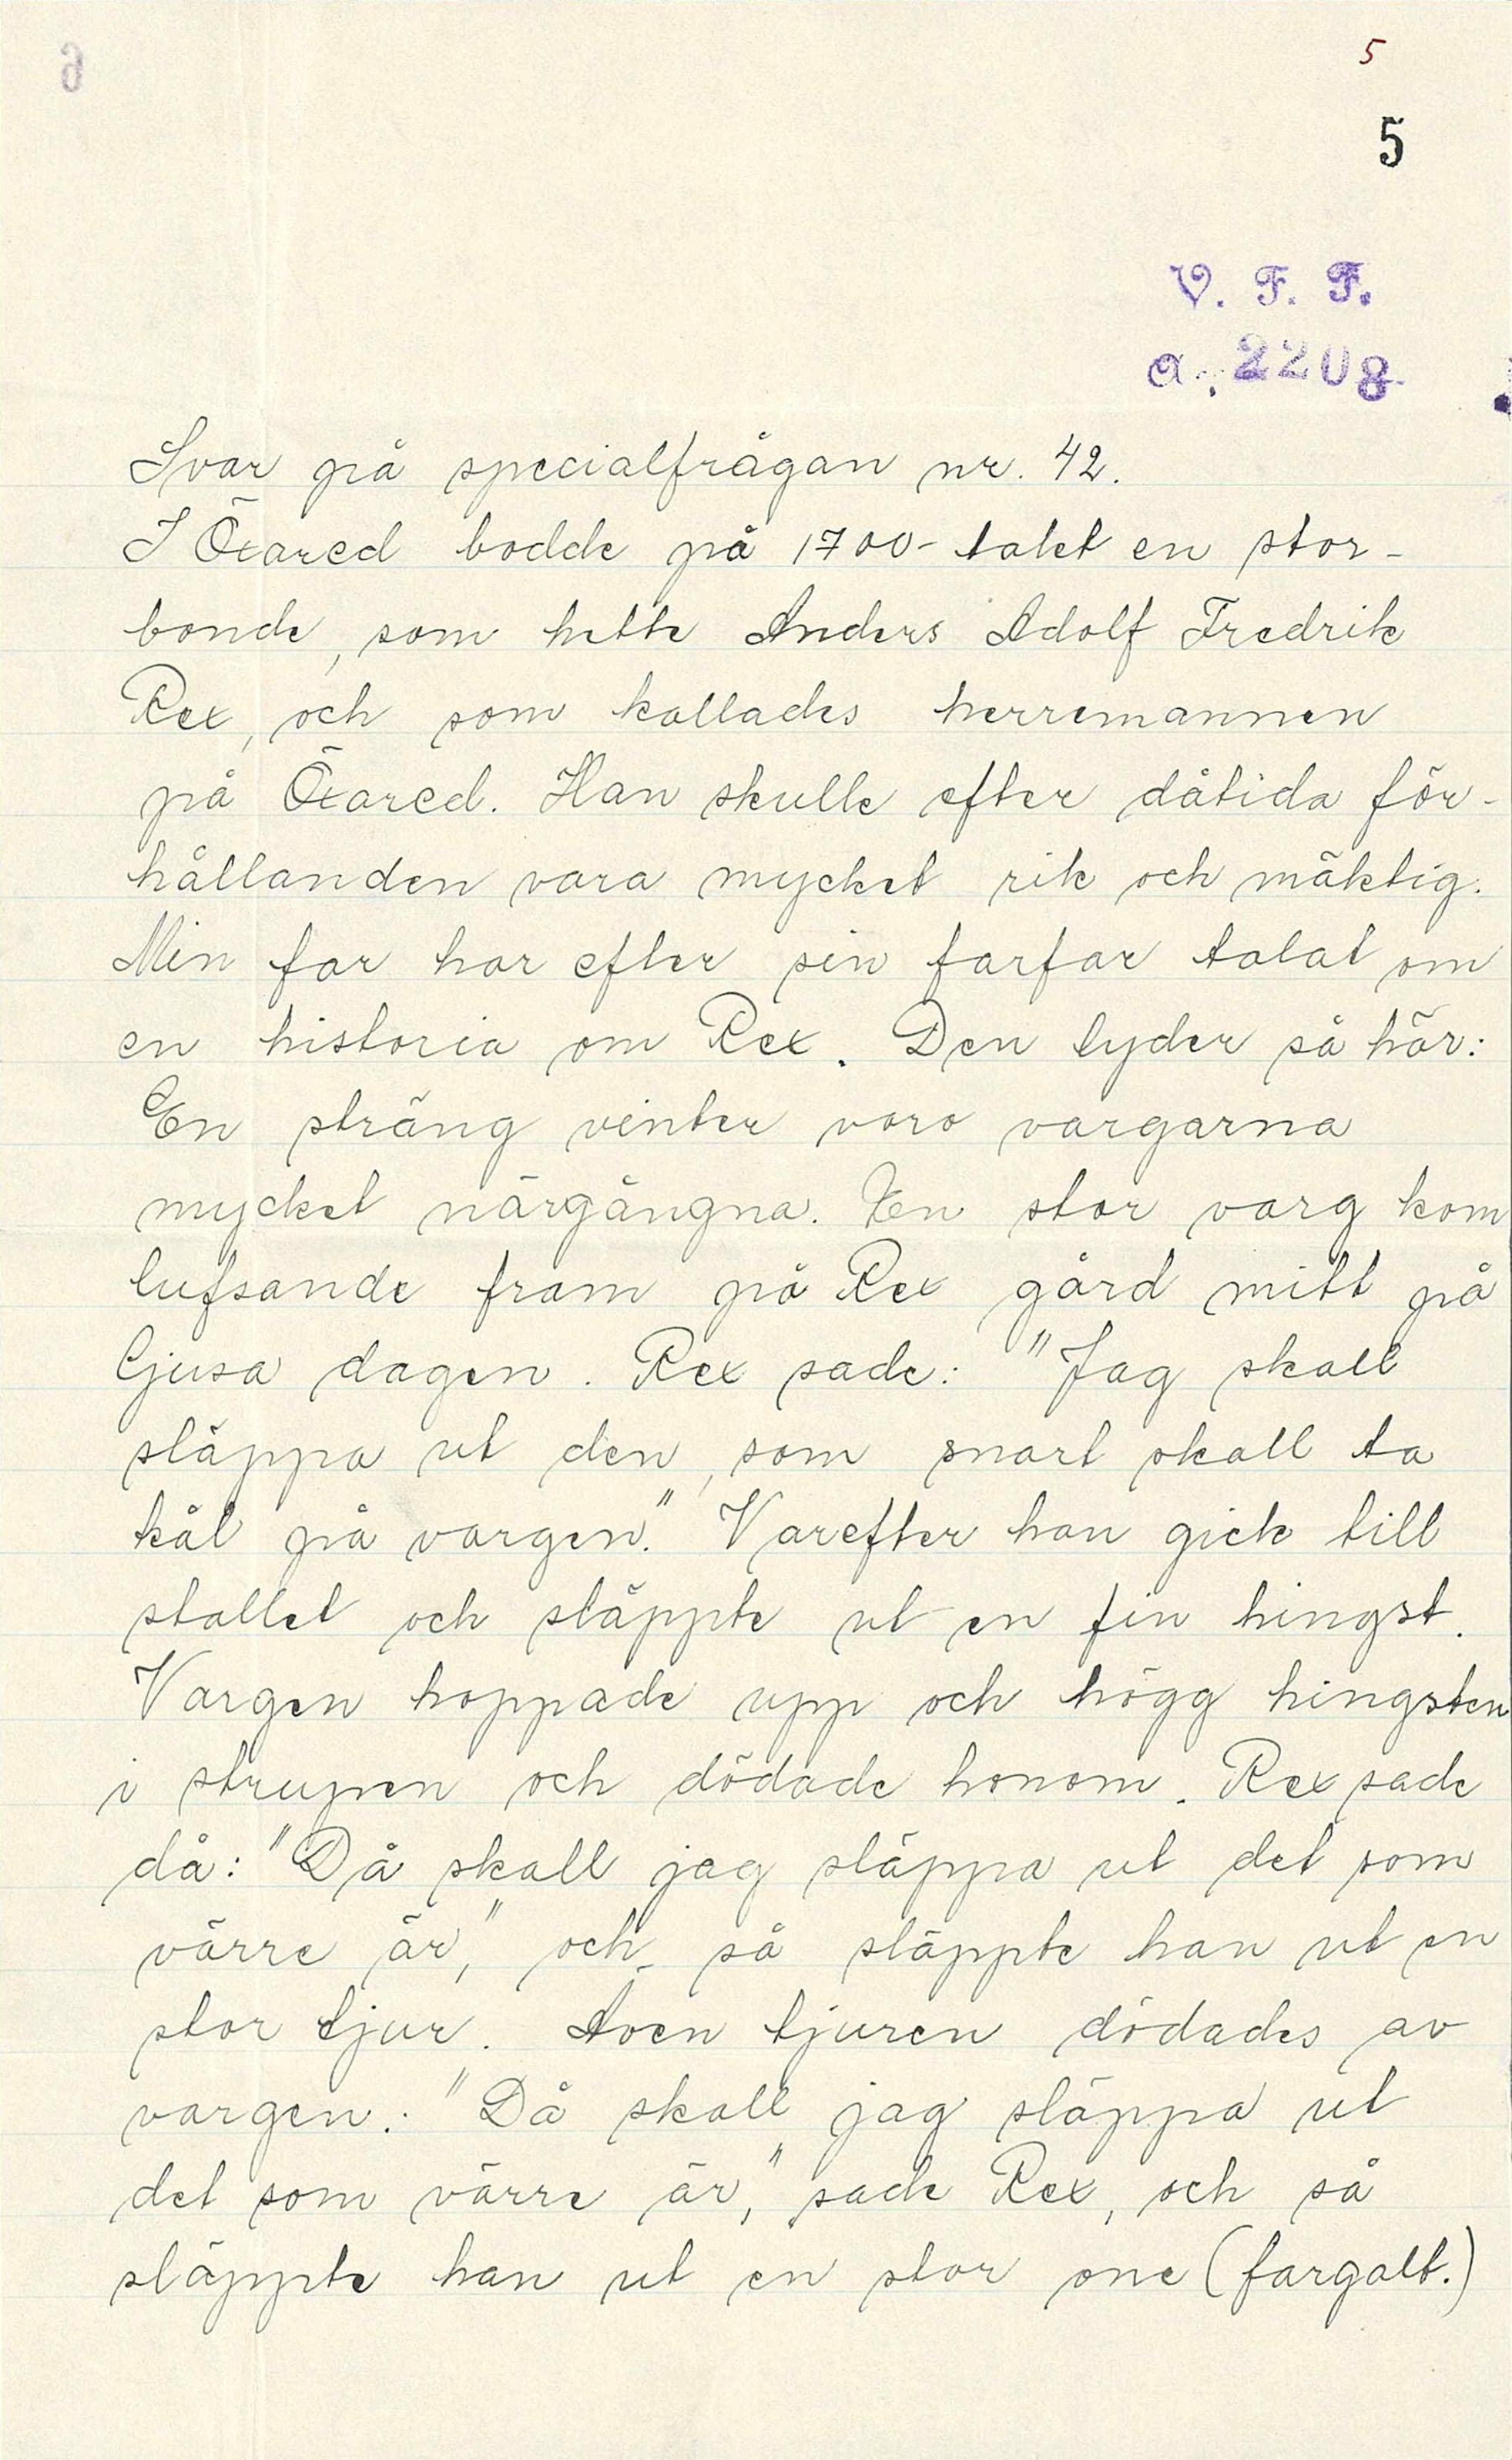 5
5
V. F. F.
a. 2208
Svar på specialfrågan nr. 42.
I Öxared bodde på 1700-talet en stor-
bonde, som hette Anders Adolf Fredrik
Rex, och som kallades herremannen
på Öxared. Han skulle efter dåtida för-
hållanden vara mycket rik och mäktig.
Min far har efter sin farfar talat om
en historia om Rex. Den lyder så här:
En sträng vinter voro vargarna
mycket närgångna. En stor varg kom
lufsande fram på Rex gård mitt på
ljusa dagen. Rex sade: "Jag skall
släppa ut den, som snart skall ta
kål på vargen." Varefter han gick till
stallet och släppte ut en fin hingst.
Vargen hoppade upp och högg hingsten
i strupen och dödade honom. Rex sade
då: "Då skall jag släppa ut det som
värre är," och så släppte han ut en
stor tjur. Även tjuren dödades av
vargen.: "Då skall jag släppa ut
det som värre är," sade Rex, och så
släppte han ut en stor one (fargalt.)